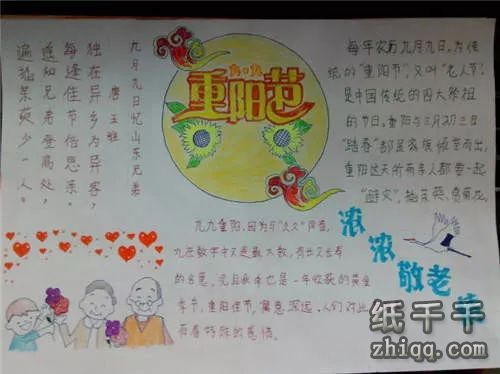 九月九日忆山东兄弟
唐 王维
独在异乡为异客,
每逢佳节倍思亲。
遥知兄弟登高处,
遍插茱萸少一人。
九·九
重阳节
每年农历九月九日,为传
统的"重阳节",又叫"老人节"。
是中国传统的四大祭祖
的节日,重阳与三月初三日
"踏春"都是家族倾室而出,
重阳这天所有亲人都要一起
"避灾",插茱萸、赏菊花。
浓浓
敬老情
九九重阳,因为与"久久"同音,
九在数字中又是最大数,有长久长寿
的含意,况且秋季也是一年收获的黄金
季节,重阳佳节,寓意深远,人们对此
有着特殊的感情。
纸千千
zhiqq.com